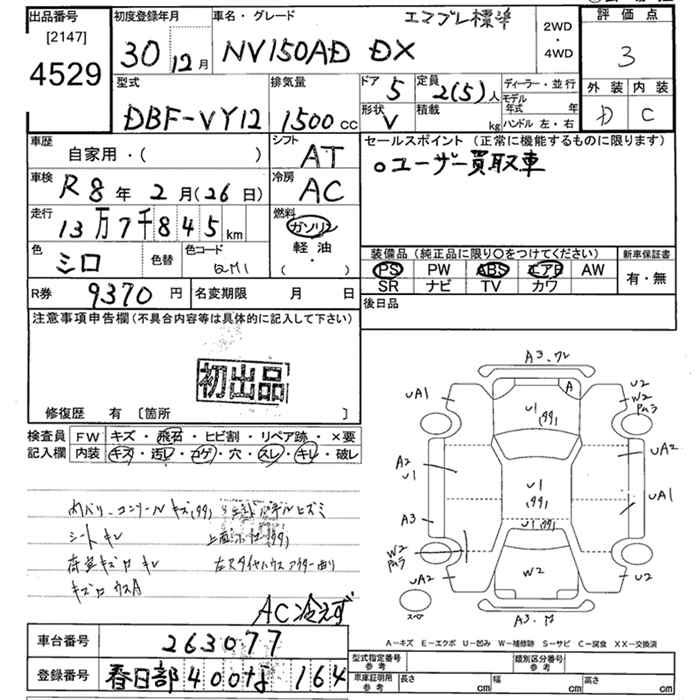 出品番号 初度登録年月 車名・グレード エマブレ標準 2WD・4WD 評価点
[2147]
4529
30 12月 NV150AD DX 3
型式 排気量 ドア 5 定員 2(5)人 ディーラー・並行 外装 内装
DBF-VY12 1500cc 形状 V 積載 kg モデル年式 年 D C
ハンドル 左・右
車歴 シフト セールスポイント (正常に機能するものに限ります)
自家用・( ) AT 。ユーザー買取車
車検 R8年2月(26日) 冷房 AC
走行 13万7千845km 燃料 ガソリン
軽油
・( )
色 シロ 色替 色コード QM1
装備品 (純正品に限り○をつけてください) 新車保証書
PS PW ABS エアB AW 有・無
SR ナビ TV カワ
R券 9370円 名変期限 月 日 後日品
注意事項申告欄 (不具合内容等は具体的に記入して下さい)
初出品
修復歴 有 [箇所 ]
検査員 FW キズ・飛石・ヒビ割・リペア跡・×要
記入欄 内装 キズ・汚レ・コゲ・穴・スレ・キレ・破レ
内バリ、コンソールキズ(99)
シートキレ
荷室キズ口キレ
キズ口ウスA
AC冷えず
A3.ワレ
UA1 A U2
W2
U1 (99)
A2 UA2
U1 U1 UA1
(99)
A3 U1(99)
W2
UA2 W2 U2
スペア
A3.
A-キズ E-エクボ U-凹み W-補修跡 S-サビ C-腐食 XX-交換済
車台番号 263077
登録番号 春日部 400な 164
型式指定番号 参考 類別区分番号 参考
車庫証明用 参考 長さ cm 幅 cm 高さ cm